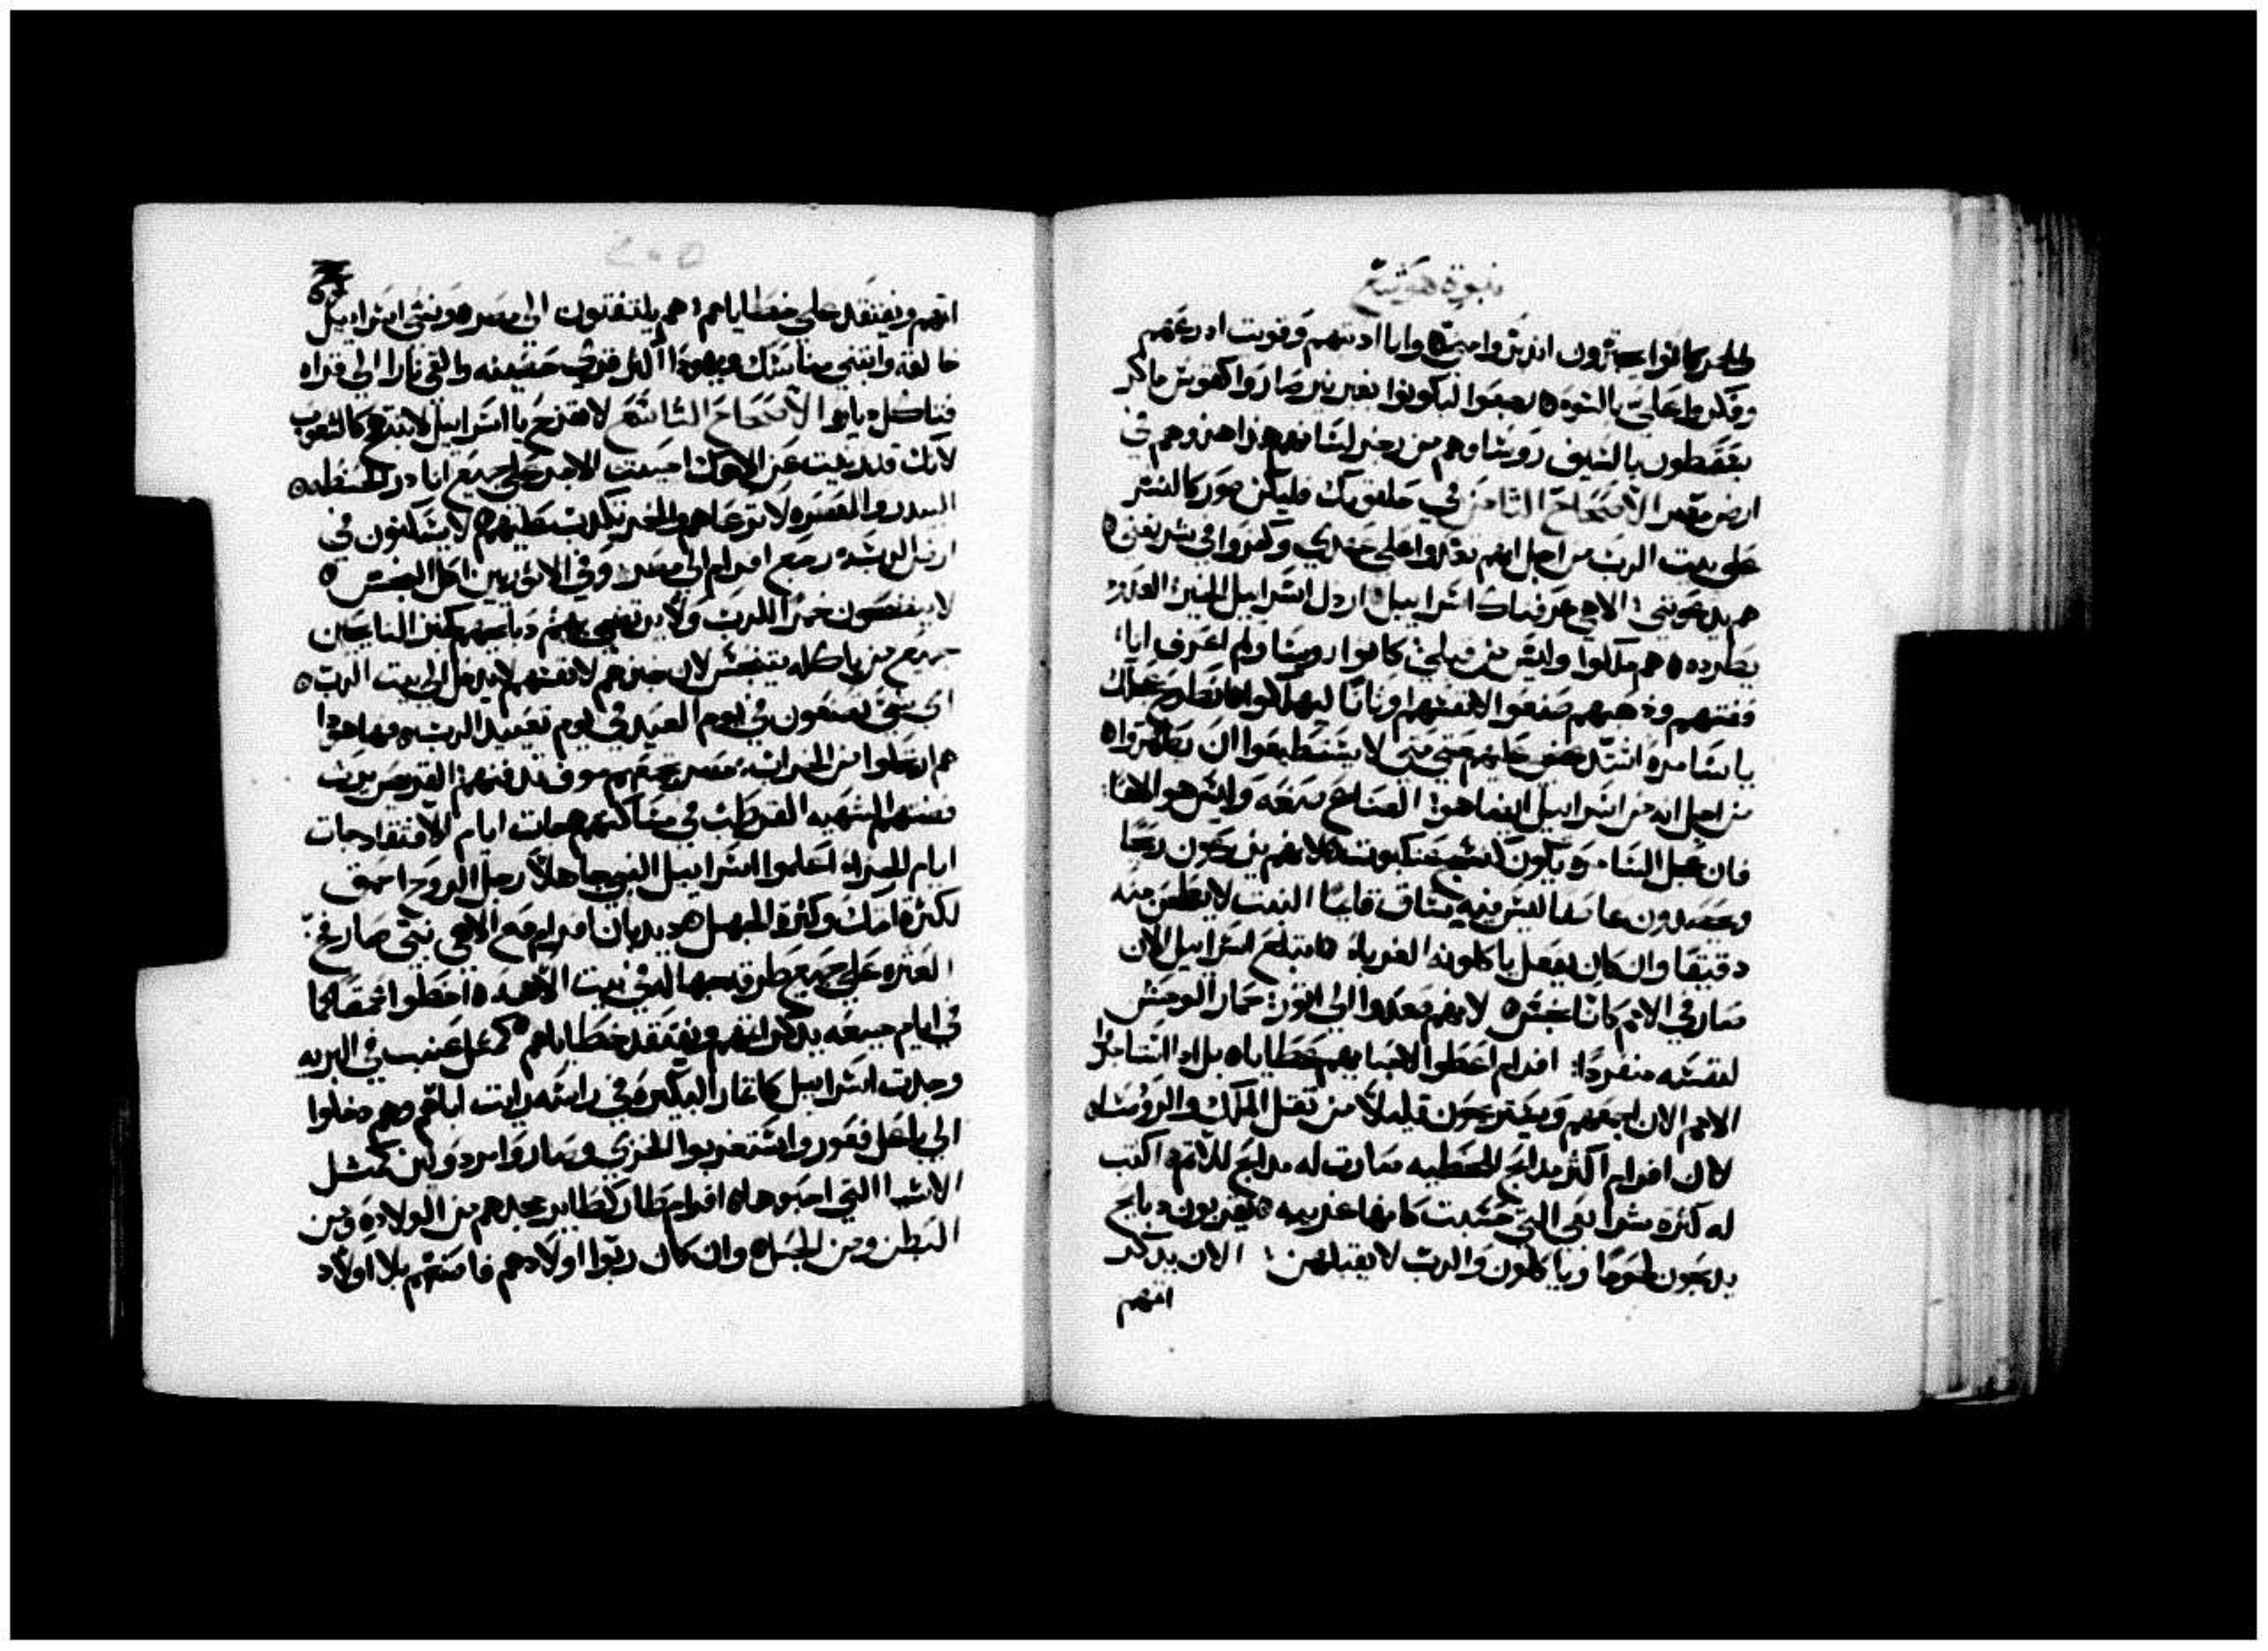 نبوة هوشع
والخمر كانوا يجترون اندبروا مني وانا ادبتهم وقويت ادرعتهم
وفكروا علي بالسوء رجعوا ليكونوا بغير نير صاروا كقوس ماكر
يسقطون بالسيف روسا وهم من رجز لسانهم هذا هزوهم في
ارض مصر الاصحاح الثامن في حلقومك فليكن صور كالنسر
على بيت الرب من اجل انهم تعدوا على عهدي وكفروا في شريعتي
هم يدعونني الاهي عرفناك اسراييل ارذل اسراييل الخير العدو
يطرده هم ملكوا وليس من قبلي كانوا روسا ولم اعرف اياء
فضتهم وذهبهم صنعوا لانفسهم اوثانا ليهلكوا انطرح عجلك
يا سامره اشتد غضبي عليهم حتى متى لا يستطيعوا ان يطهروا
من اجل انه من اسراييل ايضا هو الصناع صنعه وليس هو الاها
فان عجل السامره يكون لنسج عنكبوت لانهم يزرعون ريحا
ويحصدون عاصفا ليس فيه ساق قايما النبت لا يطحن منه
دقيقا وان كان يفعل ياكلونه الغرباء ابتلع اسراييل الان
صار في الامم كانا نجس لانهم صعدوا الى اثور حمار الوحش
لنفسه منفردا افرام اعطوا لاحبابهم
الامم الان اجمعهم ويستريحون قليلا من ثقل الملك والروسا
لان افرام اكثر مدابح للخطيه صارت له مدابح للاثم اكتب
له كثرة شرايعي التي حسبت كانها غريبه يقربون دبايح
يدبحون لحوما وياكلون والرب لا يقبلهن الان يدكر
اثمهم
205
اثمهم ويفتقد على خطاياهم هم يلتفتون الى مصر هو نسي اسراييل
خالقه وابتنى مناسك ويهودا اكثر قرى حصينه والقي نارا الى قراه
فتاكل ديارها الاصحاح التاسع لا تفرح يا اسراييل لا تبتهج كالشعوب
لانك قد زنيت عن الاهك احببت الاجر على جميع انادر الحنطه
البيدر والمعصره لا ترعاهم والخمر تكدب عليهم لا يسكنون في
ارض الرب رجع افرام الى مصر وفي الاثوريين اكل النجس
لا ينضحون خمرا للرب ولا يرتضي بهم دبايحهم كخبز النايحين
جميع من ياكله يتنجس لان خبزهم لانفسهم لا يدخل الى بيت الرب
اى شي تصنعون في يوم العيد في يوم تعييد الرب فها هودا
هم ارتحلوا من الخراب مصر تجمعهم موف تدفنهم القريص يرث
فضتهم الشهيه القرطب في مساكنهم جات ايام الافتقاد جات
ايام الجزاء اعلموا اسراييل النبي جاهلا رجل الروح احمق
لكثرة اثمك وكثرة الجهل هو ديدبان افرام مع الاهي نبي صار فخ
العثره على جميع طرقه جهاله في بيت الاهه اخطوا بعمق كما
في ايام جبعه يدكر اثمهم ويفتقد خطاياهم كمثل عنب في البريه
وجدت اسراييل كاثمار البكيره في راسه رايت اباهم وهم دخلوا
الى باعل فغور واستعربوا للخزي وصاروا مردولين كمثل
الاشيا التي احبوها افرام طار كطاير مجدهم من الولاده ومن
البطن ومن الحبل وان كان ربوا اولادهم فاصيرهم بلا اولاد